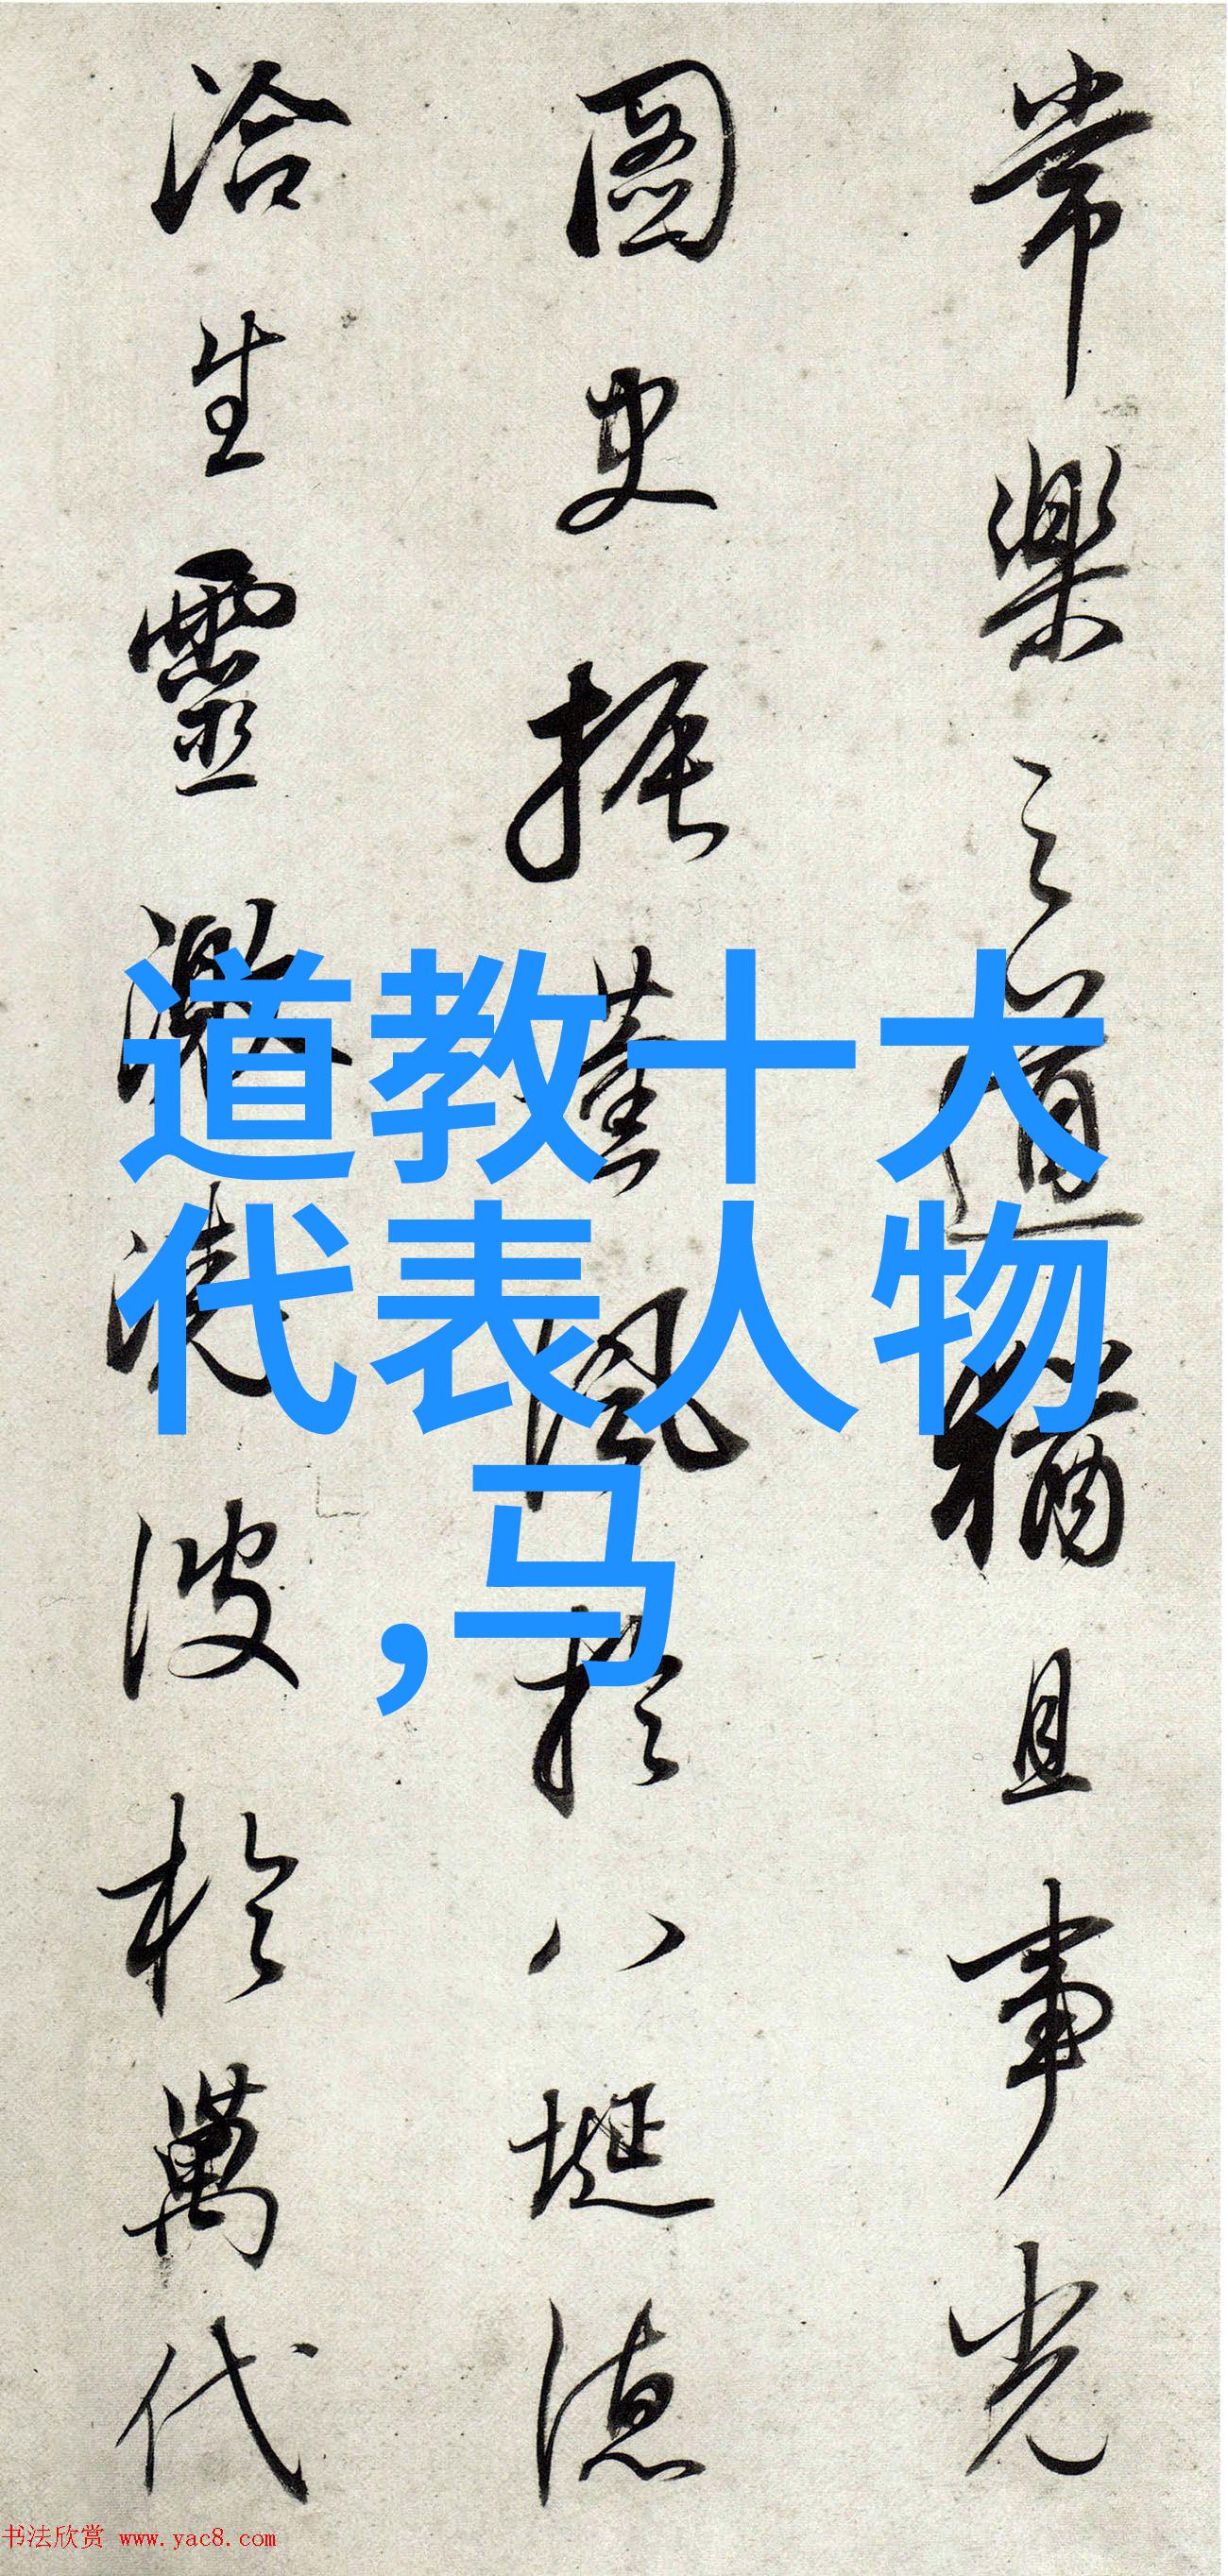 常樂之道猶且事光
圖史振薰風於八埏德
洽生靈激波於萬代
道教十大
代表人物
,马
书法欣赏 www.yac8.com